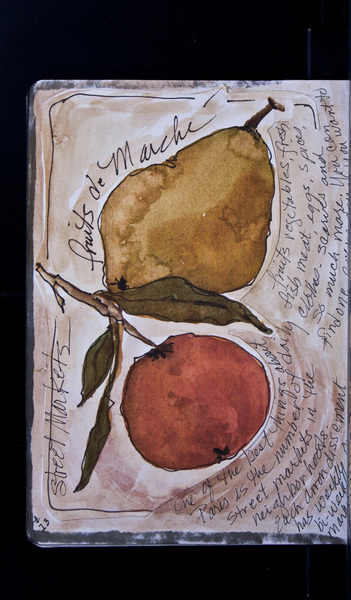 fruits de Marche
Street Markets
One of the best things about
Paris is the number of
Street markets in the
neighborhoods.
Each arrondissement
has weekly
bi-weekly
fruits, vegetables, fresh
fish, meat, eggs, spices,
clothes, scarves and
so much more. You want to
find one
#23